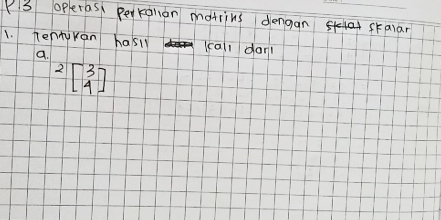 P.3 operasi perkalian matriks dengan skalar
1. Tentukan hasil kali dari
a.
2 [3
4]